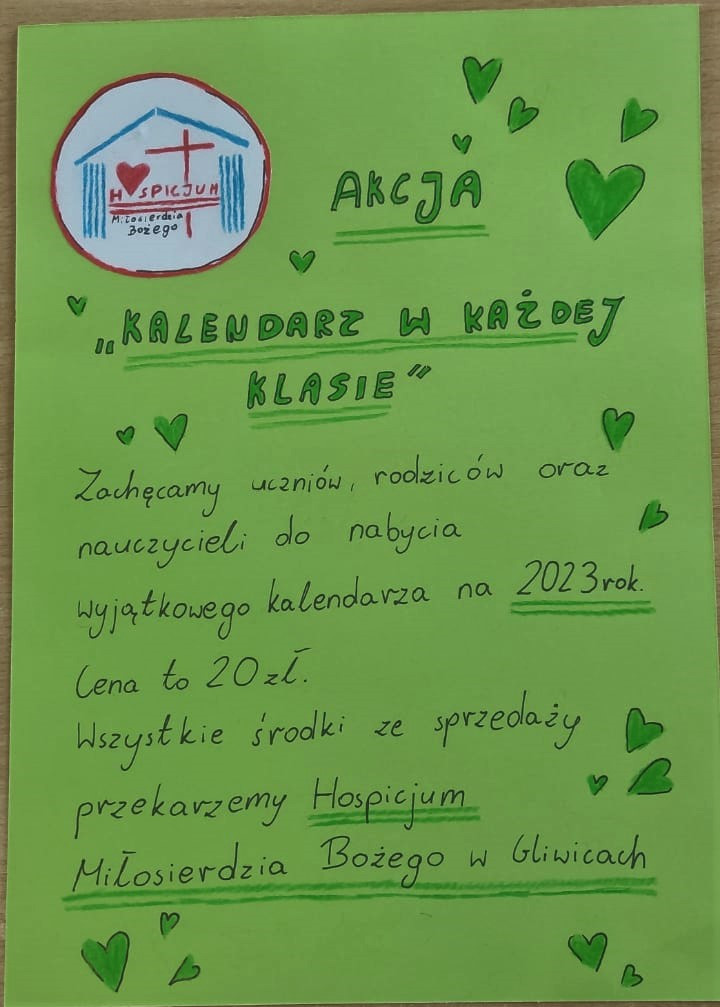 HOSPICJUM
Miłosierdzia
Bożego
AKCJA
„KALENDARZ W KAŻDEJ
KLASIE”
Zachęcamy uczniów, rodziców oraz
nauczycieli do nabycia
wyjątkowego kalendarza na 2023 rok.
Cena to 20 zł.
Wszystkie środki ze sprzedaży
przekarzemy Hospicjum
Miłosierdzia Bożego w Gliwicach